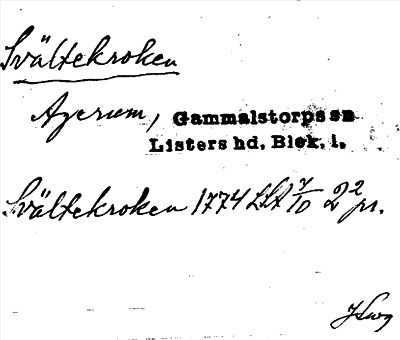 Svältekroken
Agerum, Gammalstorps sn
Listers hd. Blek. l.
Svältekroken 1774 LSA 7/10 2 2 pr.